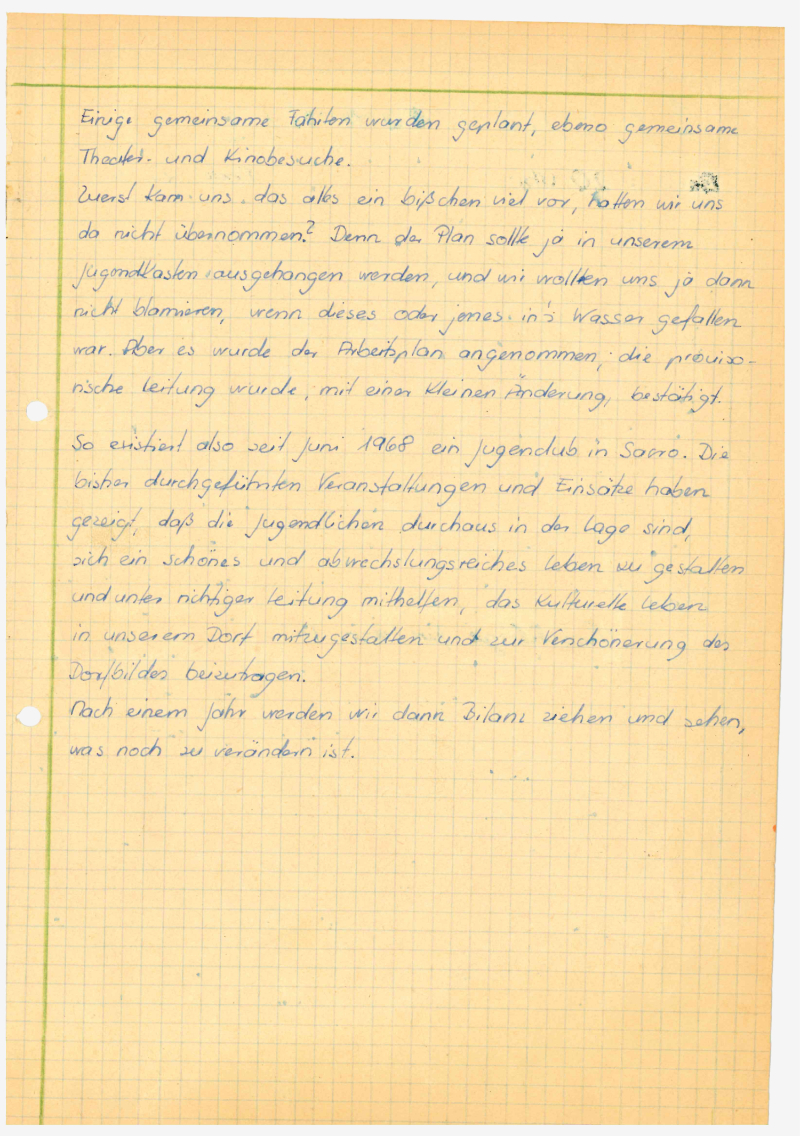 Einige gemeinsame Fahrten wurden geplant, ebenso gemeinsame
Theater- und Kinobesuche.
Zuerst kam uns das alles ein bißchen viel vor, hatten wir uns
da nicht übernommen? Denn der Plan sollte ja in unserem
Jugendkasten ausgehangen werden, und wir wollten uns ja dann
nicht blamieren, wenn dieses oder jenes in's Wasser gefallen
war. Aber es wurde der Arbeitsplan angenommen, die proviso-
rische Leitung wurde, mit einer kleinen Änderung, bestätigt.
So existiert also seit Juni 1968 ein Jugendclub in Sacro. Die
bisher durchgeführten Veranstaltungen und Einsätze haben
gezeigt, daß die Jugendlichen durchaus in der Lage sind,
sich ein schönes und abwechslungsreiches Leben zu gestalten
und unter richtiger Leitung mithelfen, das kulturelle Leben
in unserem Dorf mitzugestalten und zur Verschönerung des
Dorfbildes beizutragen.
Nach einem Jahr werden wir dann Bilanz ziehen und sehen,
was noch zu verändern ist.